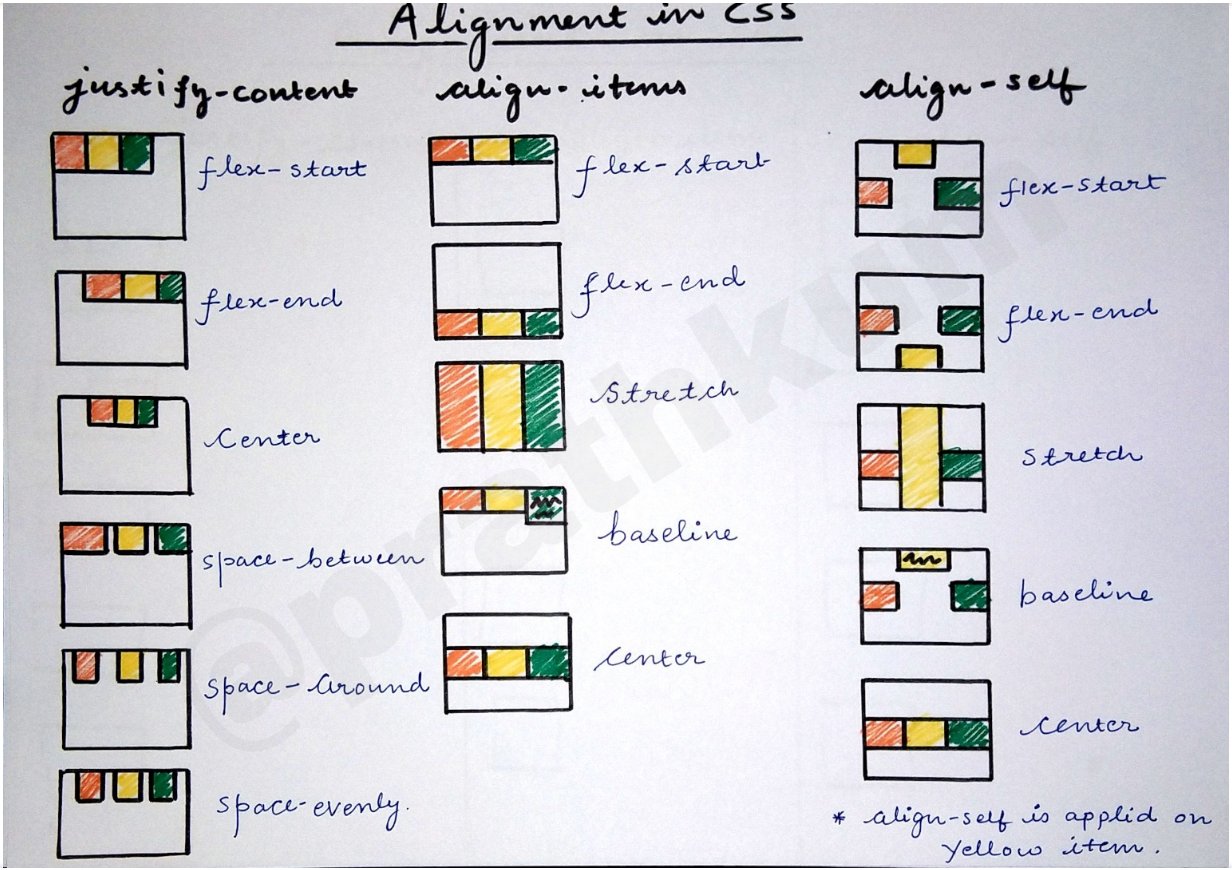 Alignment in CSS
justify-content
flex-start
flex-end
Center
space-between
space-Around
space-evenly.
align-items
flex-start
flex-end
Stretch
baseline
Center
align-self
flex-start
flex-end
Stretch
baseline
Center
* align-self is applid on
Yellow item.
@prathkum